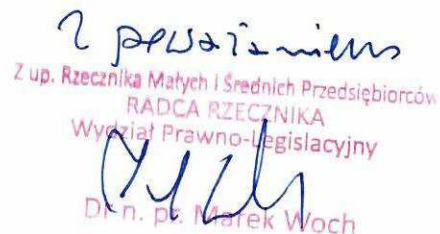 Z poważaniem
Z up. Rzecznika Małych i Średnich Przedsiębiorców
RADCA RZECZNIKA
Wydział Prawno-Legislacyjny
Dr n. pr. Marek Woch